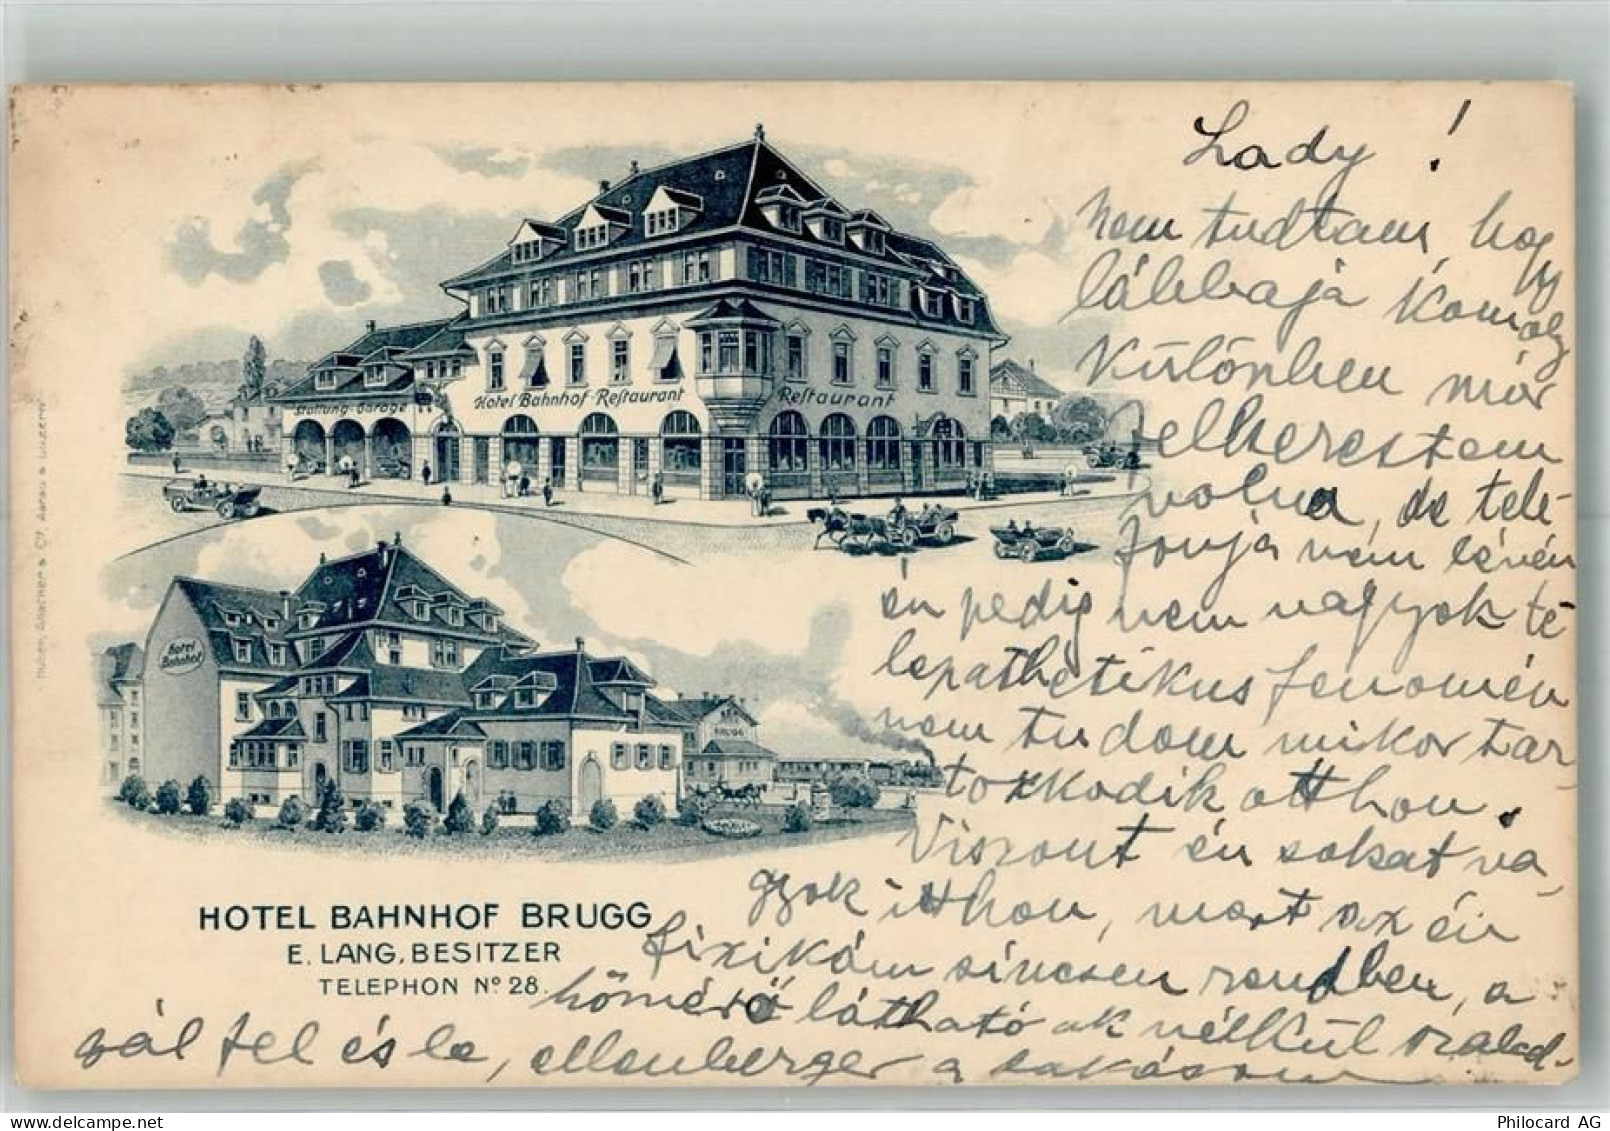 Lady !
Nem tudtam, hogy
lábbaja komoly
Különben már
felkerestem
volna, de tele-
fonja nem lévén
én pedig nem vagyok te-
lepathetikus fenomén
nem tudom mikor tar-
tózkodik otthon.
Viszont én sokat va-
gyok itthon, mert az én
fizikám sincsen rendben, a
hőmérő látható ok nélkül szalad-
gál fel és le, ellenberger a
Stallung-Garage
Hotel Bahnhof-Restaurant
Restaurant
Hotel
Bahnhof
BRUGG
HOTEL BAHNHOF BRUGG
E. LANG, BESITZER
TELEPHON No 28.
Philocard AG